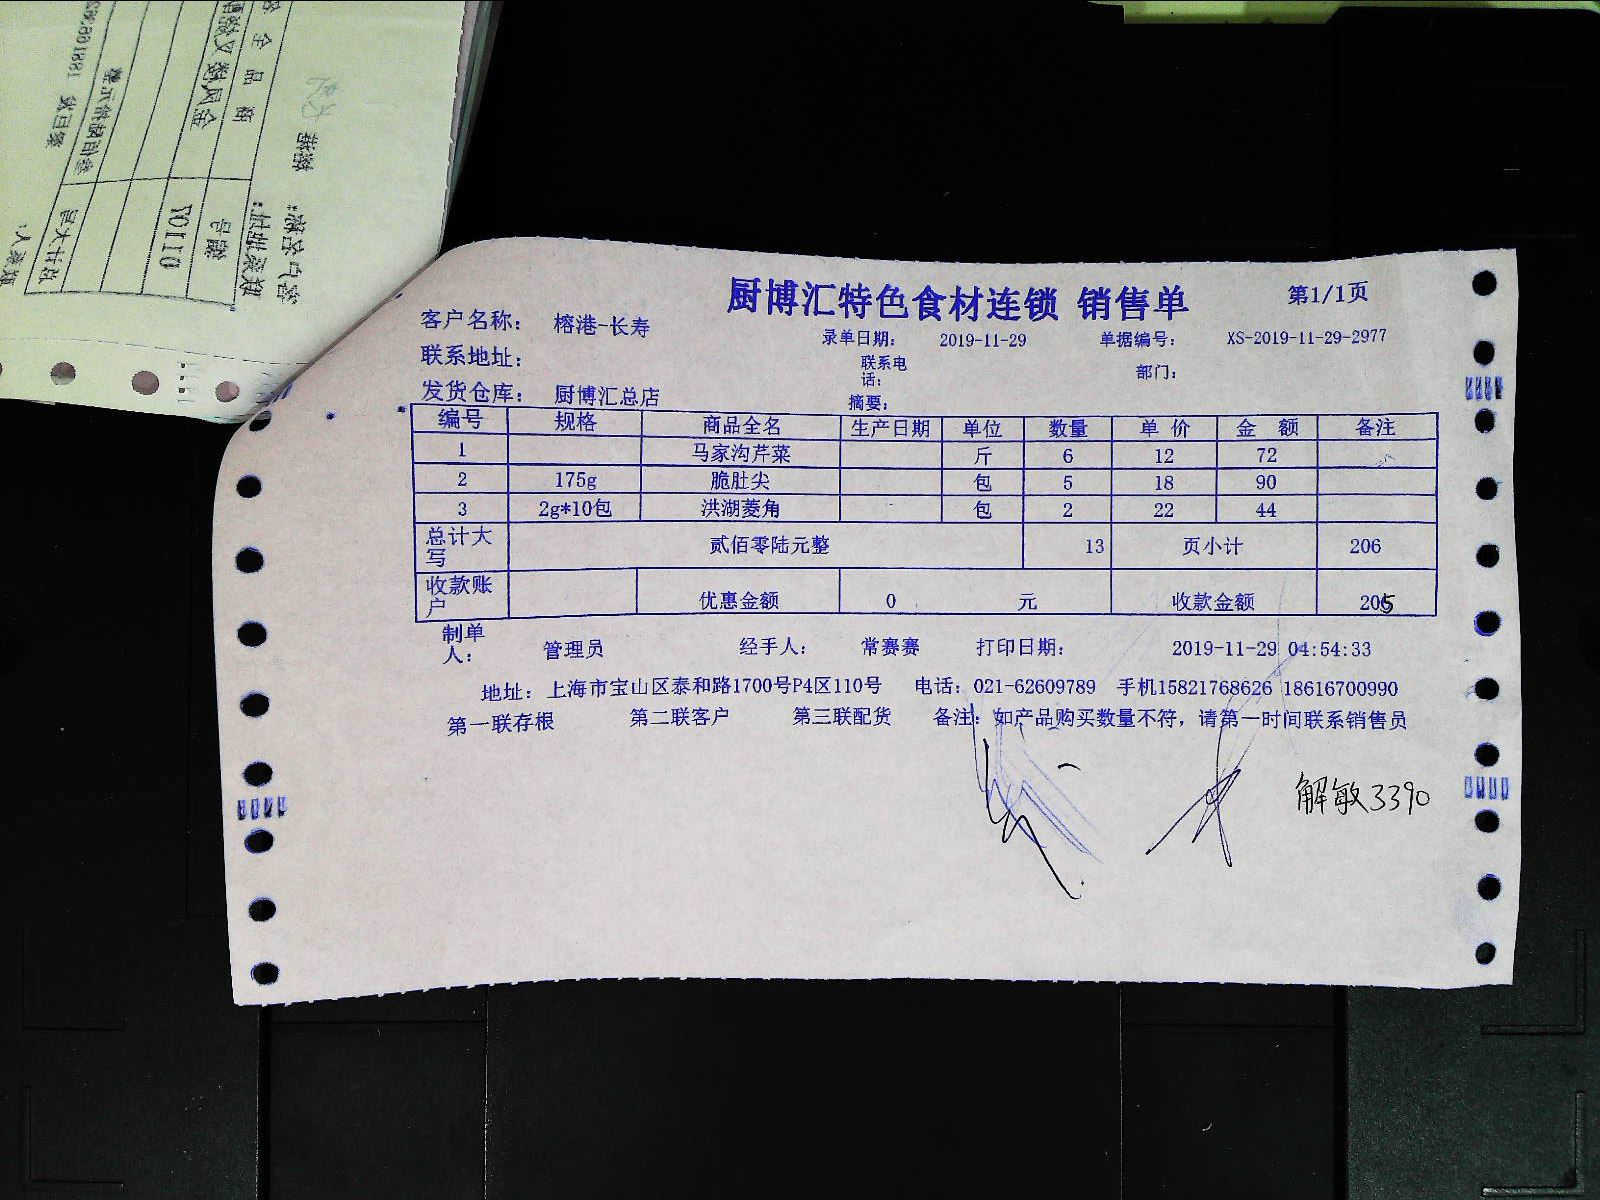 厨博汇特色食材连锁 销售单 第1/1页
客户名称： 榕港-长寿 录单日期： 2019-11-29 单据编号： XS-2019-11-29-2977
联系地址： 联系电话： 部门：
发货仓库： 厨博汇总店 摘要：
编号 规格 商品全名 生产日期 单位 数量 单 价 金 额 备注
1 马家沟芹菜 斤 6 12 72
2 175g 脆肚尖 包 5 18 90
3 2g*10包 洪湖菱角 包 2 22 44
总计大写 贰佰零陆元整 13 页小计 206
收款账户 优惠金额 0 元 收款金额 205
制单人： 管理员 经手人： 常赛赛 打印日期： 2019-11-29 04:54:33
地址：上海市宝山区泰和路1700号P4区110号 电话：021-62609789 手机15821768626 18616700990
第一联存根 第二联客户 第三联配货 备注：如产品购买数量不符，请第一时间联系销售员
解敏3390